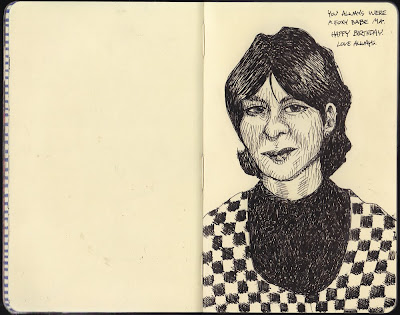 YOU ALWAYS WERE
A FOXY BABE MA.
HAPPY BIRTHDAY.
LOVE ALWAYS.